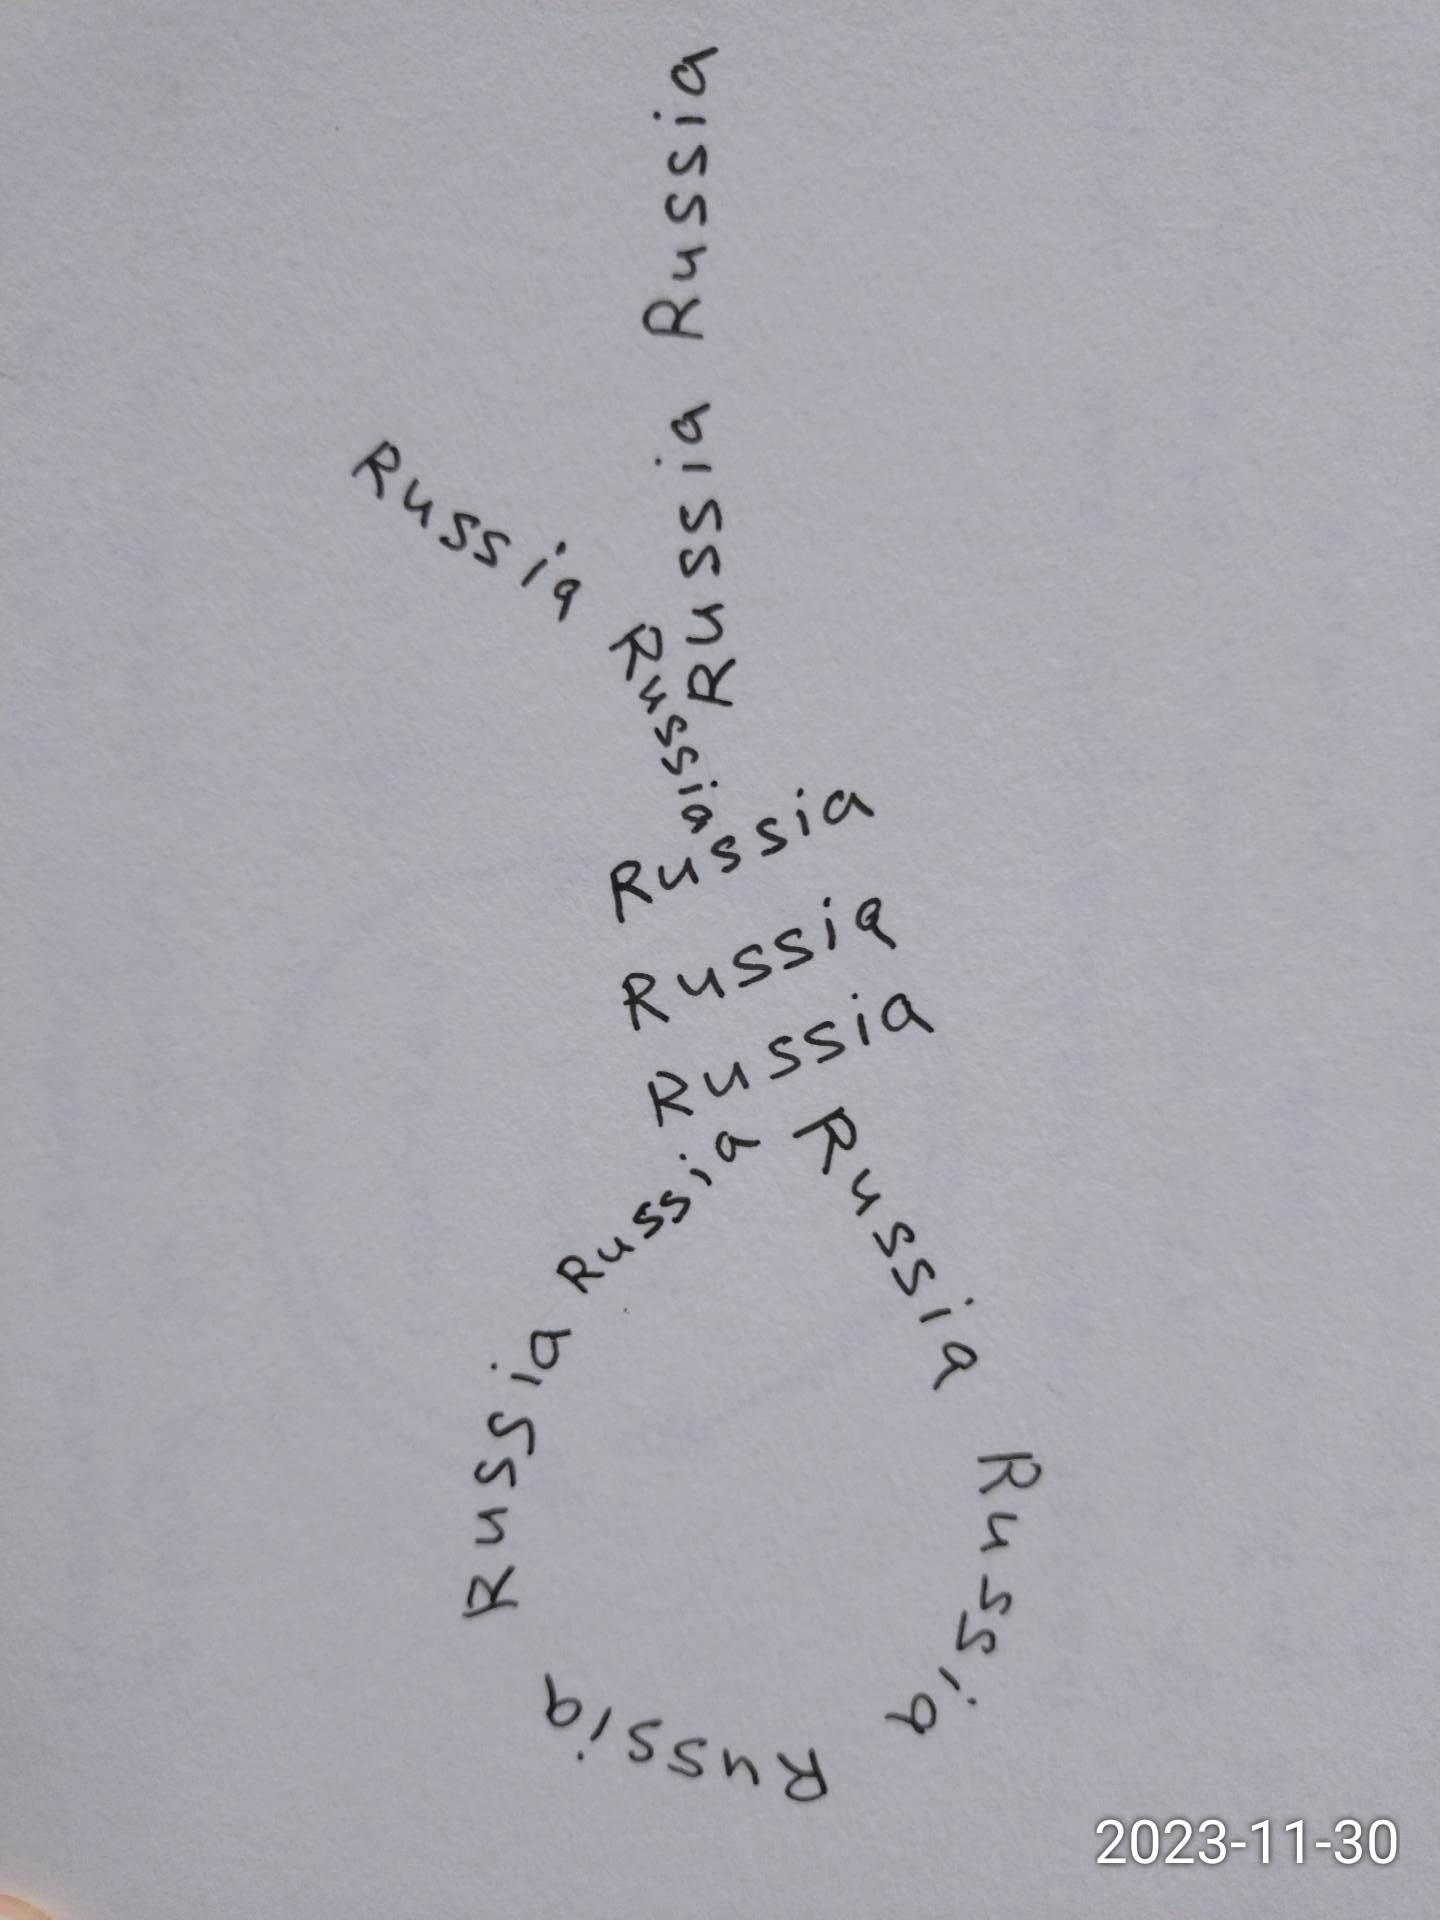 Russia
Russia
Russia
Russia
Russia
Russia
Russia
Russia
Russia
Russia
Russia
Russia
2023-11-30